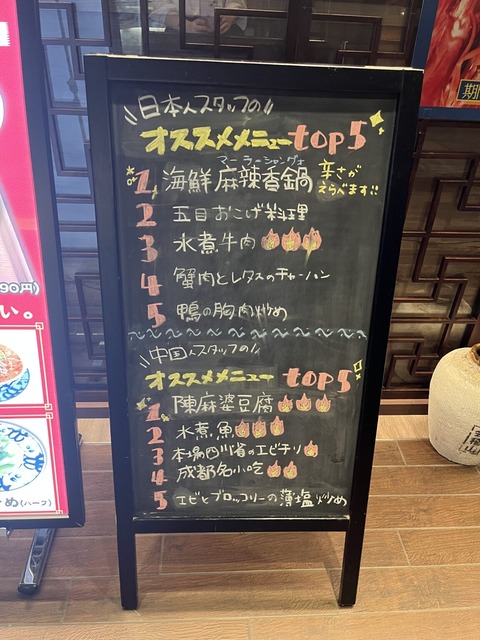 日本人スタッフの
オススメメニューtop5
マーラーシャングォ
1 海鮮麻辣香鍋 辛さが
えらべます!!
2 五目おこげ料理
3 水煮牛肉
4 蟹肉とレタスのチャーハン
5 鴨の胸肉炒め
中国人スタッフの
オススメメニュー top5
1 陳麻婆豆腐
2 水煮魚
3 本場四川省のエビチリ
4 成都名小吃
5 エビとブロッコリーの薄塩炒め
期
90円)
い。
ぬ(ハーフ)